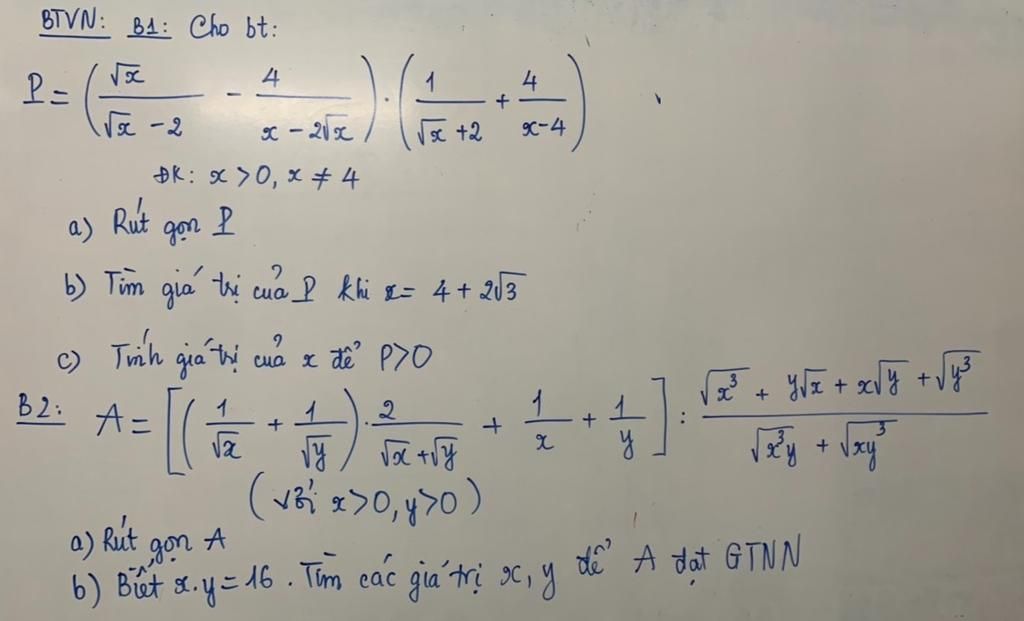 BTVN: B1: Cho bt:
P = (√x / (√x - 2) - 4 / (x - 2√x)) . (1 / (√x + 2) + 4 / (x - 4))
ĐK: x > 0, x ≠ 4
a) Rút gọn P
b) Tìm giá trị của P khi x = 4 + 2√3
c) Tính giá trị của x để P>0
B2: A = [(1/√x + 1/√y) . 2 / (√x + √y) + 1/x + 1/y] : (√x³ + y√x + x√y + √y³) / (√x³y + √xy³)
(với x>0, y>0)
a) Rút gọn A
b) Biết x.y = 16. Tìm các giá trị x, y để A đạt GTNN